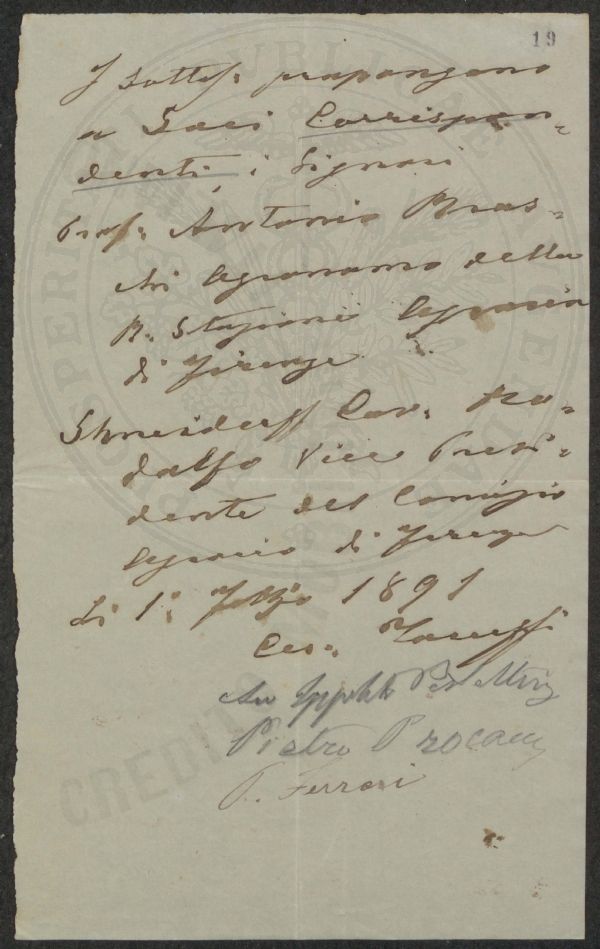 19
I Sottos. propongono
a Soci Corrispon-
denti, i Signori
Prof. Antonio Bras-
chi Agronomo della
R. Stazione Agraria
di Firenze
Shneiderff Cav. Ro-
dolfo Vice Presi-
dente del Comizio
Agrario di Firenze
Li 1° 1891
Ces.
Ippolito
Pietro Procacci
P. Ferrari
CREDITO